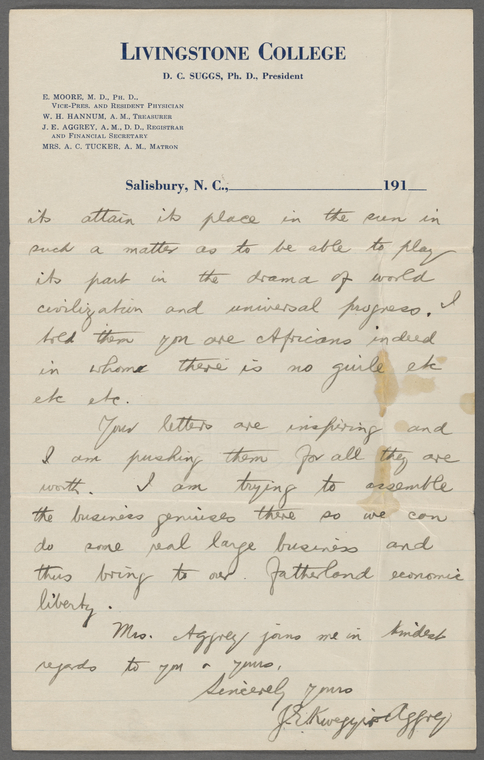 LIVINGSTONE COLLEGE
D. C. SUGGS, Ph. D., President
E. MOORE, M. D., Ph. D.,
Vice-Pres. and Resident Physician
W. H. HANNUM, A. M., Treasurer
J. E. AGGREY, A. M., D. D., Registrar
and Financial Secretary
MRS. A. C. TUCKER, A. M., Matron
Salisbury, N. C., 191
its attain its place in the sun in
such a matter as to be able to play
its part in the drama of world
civilization and universal progress. I
told them you are Africans indeed
in whom there is no guile etc
etc etc.
Your letters are inspiring and
I am pushing them for all they are
worth. I am trying to assemble
the business geniuses there so we can
do some real large business and
thus bring to our Fatherland economic
liberty.
Mrs. Aggrey joins me in kindest
regards to you & yours,
Sincerely yours
J.E. Kwegyir Aggrey